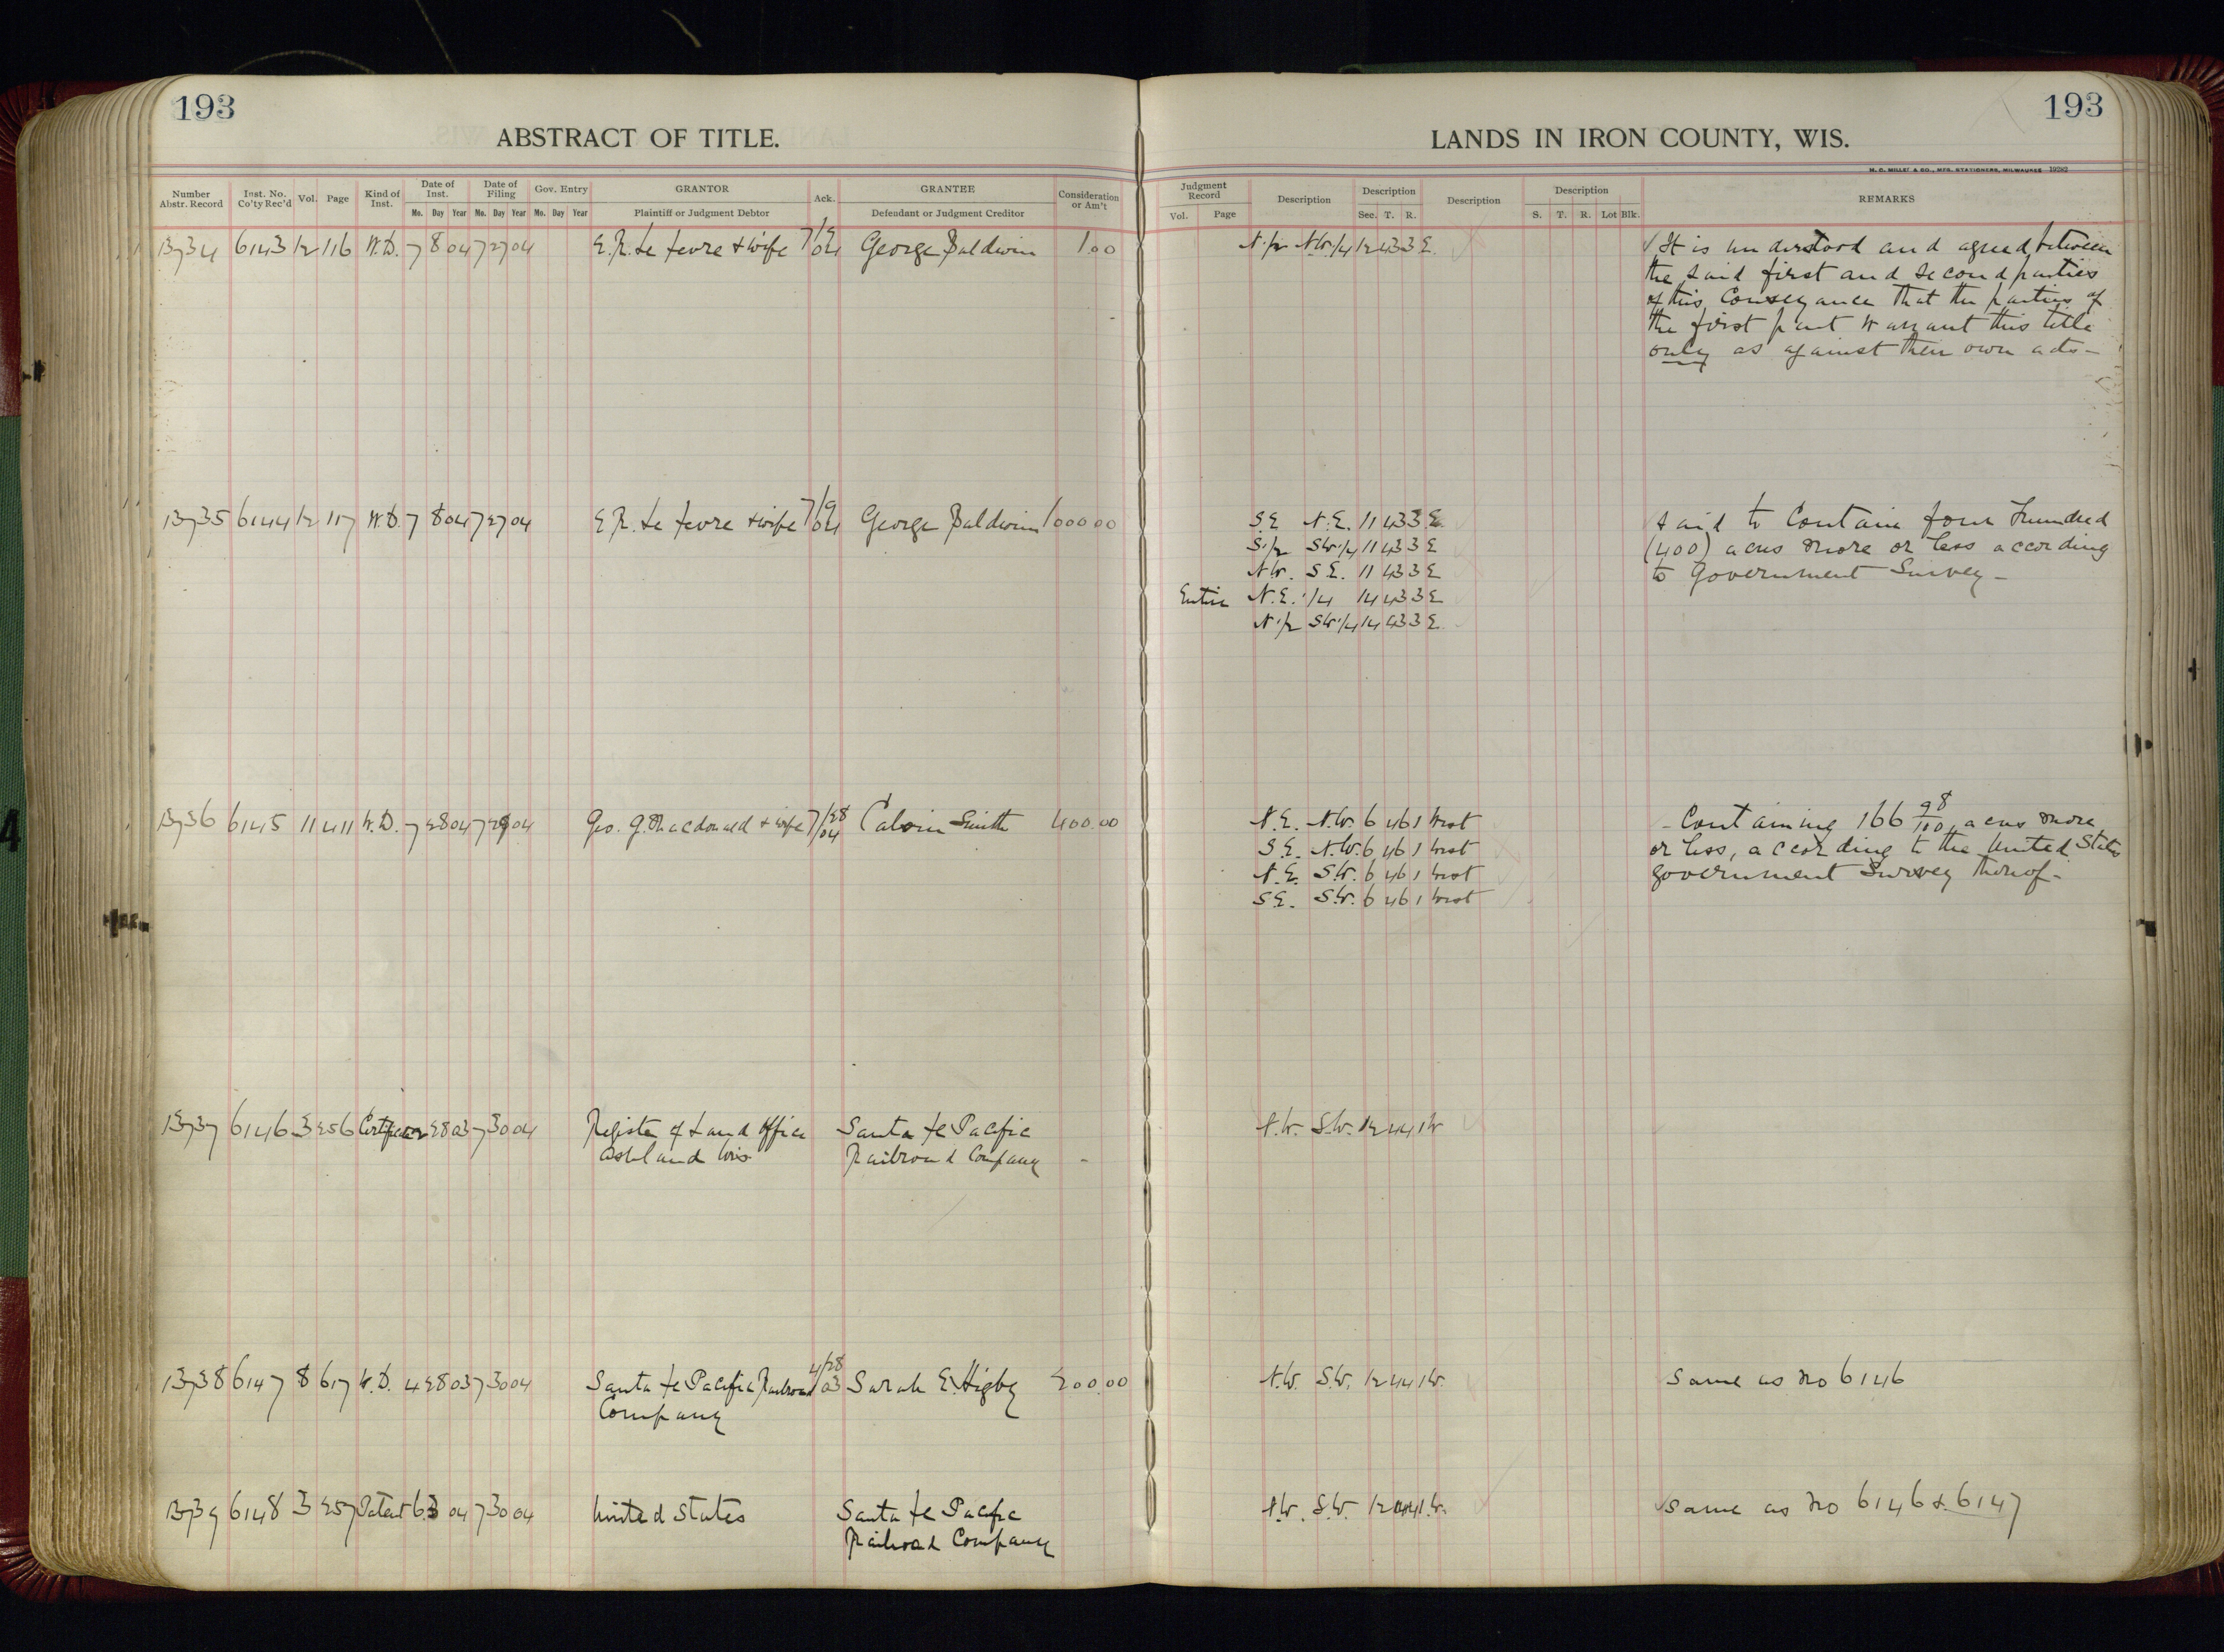 193
193
ABSTRACT OF TITLE.
LANDS IN IRON COUNTY, WIS.
M. C. MILLET & CO., MFG. STATIONERS, MILWAUKEE 19282
Number Abstr. Record
Inst. No. Co'ty Rec'd
Vol.
Page
Kind of Inst.
Date of Inst.
Mo. Day Year
Date of Filing
Mo. Day Year
Gov. Entry
Mo. Day Year
GRANTOR
Plaintiff or Judgment Debtor
Ack.
GRANTEE
Defendant or Judgment Creditor
Consideration or Am't
Judgment Record
Vol. Page
Description
Description
Sec. T. R.
Description
Description
S. T. R. Lot Blk.
REMARKS
13734 6143 12 116 W.D. 7 8 04 7 27 04 E.R. Le Fevre & wife 7/9 04 George Baldwin 1.00 N.1/2 N.W.1/4 12 43 3 E. It is understood and agreed between
the said first and second parties
of this Conveyance that the parties of
the first part warrant this title
only as against their own acts—
13735 6144 12 117 W.D. 7 8 04 7 27 04 E.R. Le Fevre & wife 7/9 04 George Baldwin 1000 00 S.E N.E. 11 43 3 E Said to Contain four Hundred
S.1/2 S.W.1/4 11 43 3 E (400) acres more or less according
N.W. S.E. 11 43 3 E to Government Survey—
Entire N.E.1/4 14 43 3 E
N.1/2 S.W.1/4 14 43 3 E
13736 6145 11 411 W.D. 7 28 04 7 29 04 Geo. G. Macdonald & wife 7/28 04 Calvin Smith 400.00 N.E. N.W. 6 46 1 West - Containing 166 98/100 acres more
S.E. N.W. 6 46 1 West or less, according to the United States
N.E. S.W. 6 46 1 West government Survey thereof-
S.E. S.W. 6 46 1 West
13737 6146 3 256 28 03 7 30 04 Register of Land Office Santa Fe Pacific N.W. S.W. 12 44 1 W
Ashland Wis Railroad Company -
13738 6147 8 617 W.D. 4 28 03 7 30 04 Santa Fe Pacific Railroad 4/28 03 Sarah E. Higby 200.00 N.W. S.W. 12 44 1 W. Same as No 6146
Company
13739 6148 3 257 Patent 6 3 04 7 30 04 United States Santa Fe Pacific N.W. S.W. 12 44 1 W. Same as No 6146 & 6147
Railroad Company